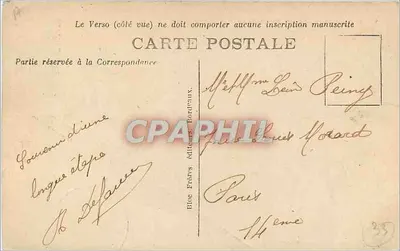 Le Verso (côté vue) ne doit comporter aucune inscription manuscrite
CARTE POSTALE
Partie réservée à la Correspondance
Souvenir d'une
longue étape
Bloc Frères éditeurs Bordeaux.
Mr et Mme Léon
Rue Louis Morard
Paris
14eme
CPAPHIL
35